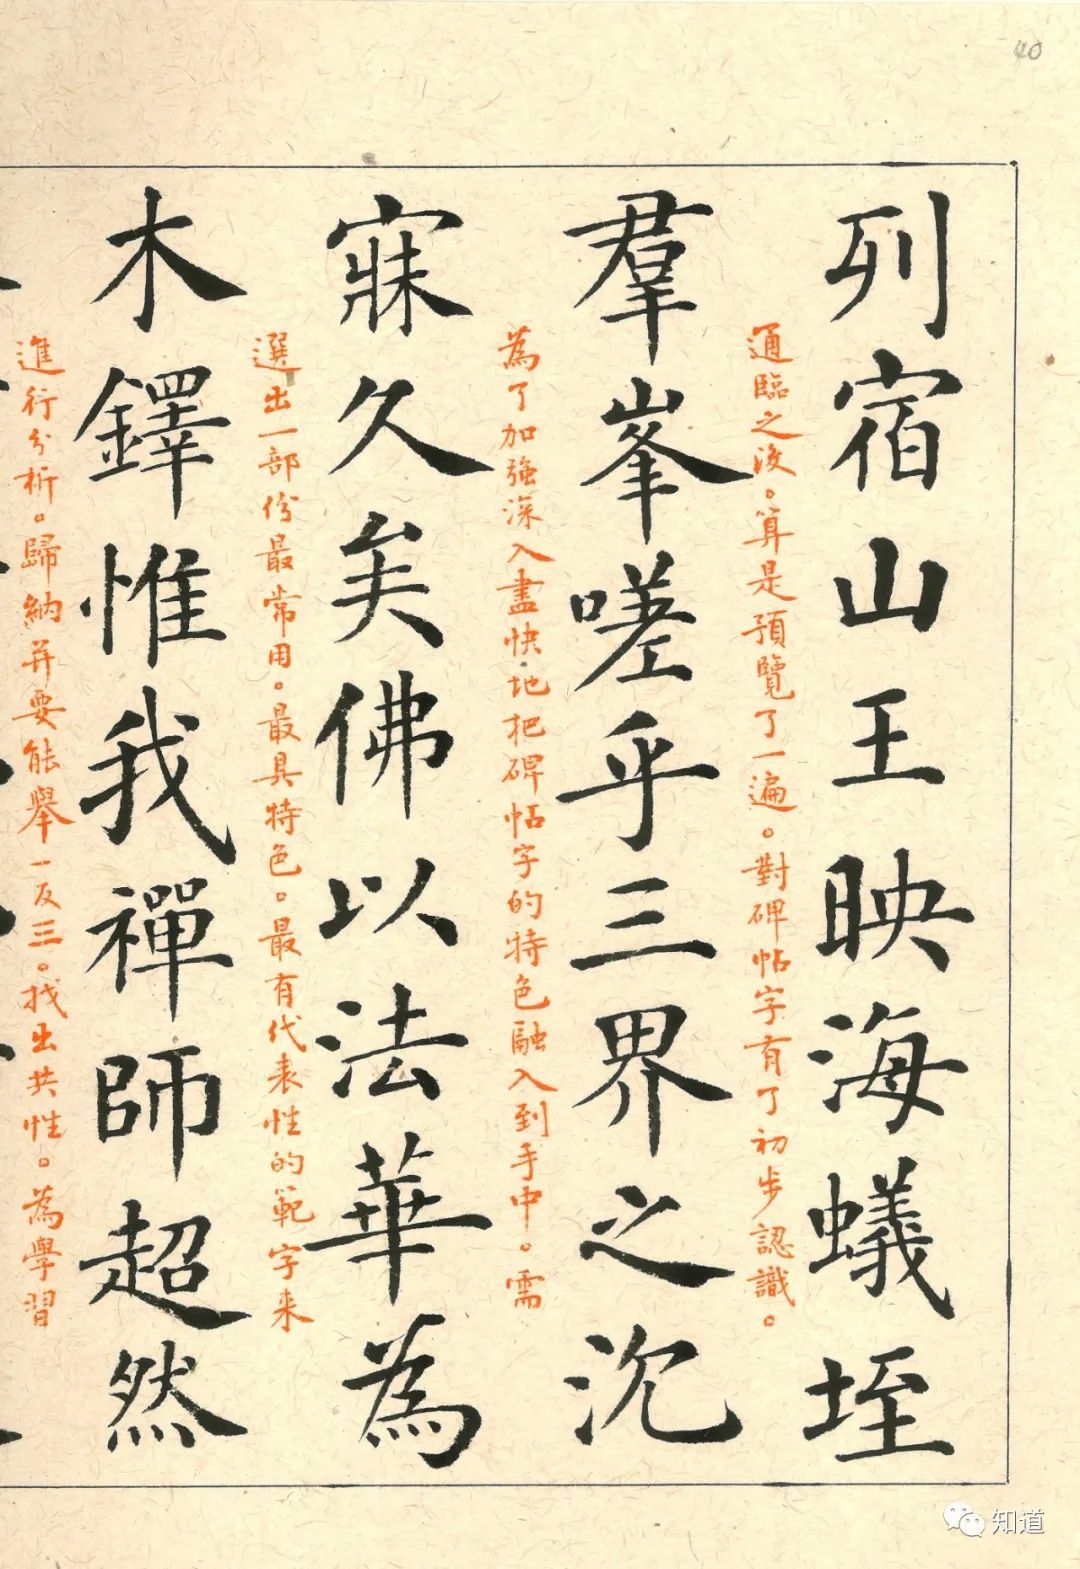 40
列宿山王映海蟻垤
通臨之後。算是預覽了一遍。對碑帖字有了初步認識。
羣峯嗟乎三界之沉
為了加強深入盡快地把碑帖字的特色融入到手中。需
寐久矣佛以法華為
選出一部份最常用。最具特色。最有代表性的範字来
木鐸惟我禪師超然
進行分析。歸納并要能舉一反三。找出共性。為學習
知道